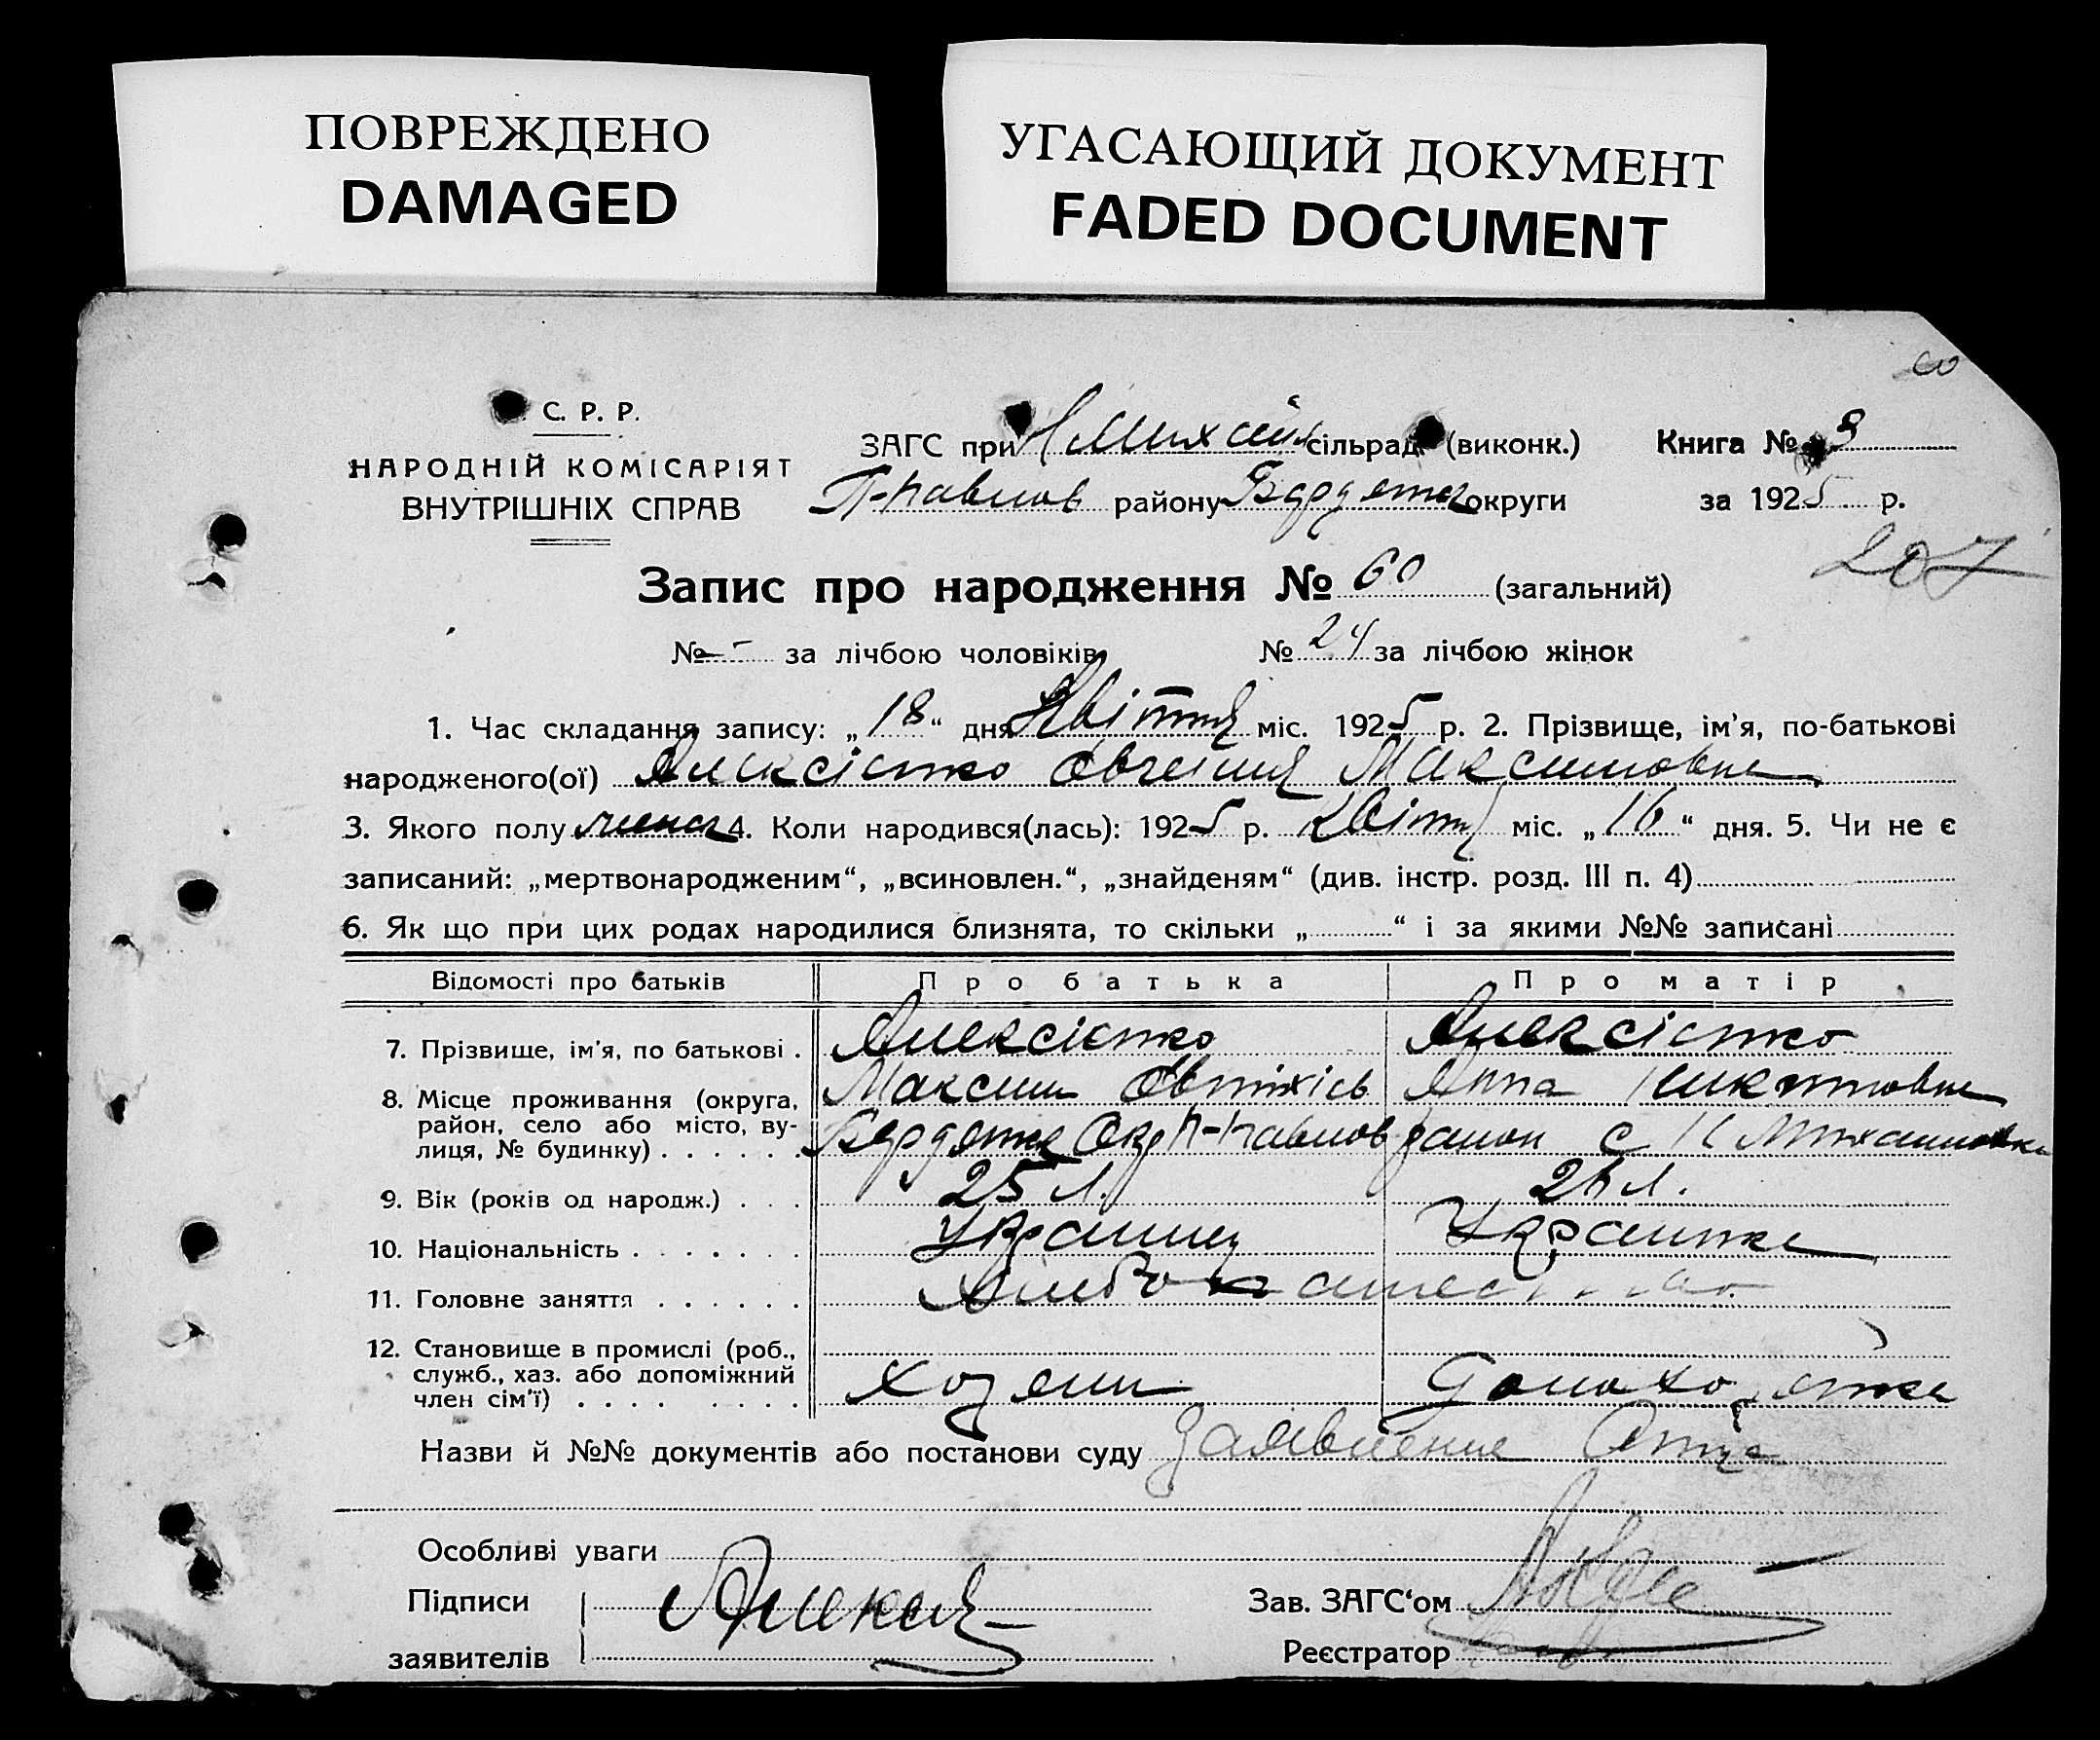 ПОВРЕЖДЕНО
DAMAGED
УГАСАЮЩИЙ ДОКУМЕНТ
FADED DOCUMENT
60
С. Р. Р.
НАРОДНІЙ КОМІСАРІЯТ
ВНУТРІШНІХ СПРАВ
ЗАГС при Н Михай сільрад (виконк.) Книга № 3
П-Павлов району Бердянск округи за 1925 р.
207
Запис про народження № 60 (загальний)
№ - за лічбою чоловіків № 24 за лічбою жінок
1. Час складання запису: „18“ дня Квітня міс. 1925 р. 2. Прізвище, ім'я, по-батькові
народженого(ої) Алексієнко Євгенія Максимовна
3. Якого полу женск 4. Коли народився(лась): 1925 р. Квітня міс. „16“ дня. 5. Чи не є
записаний: „мертвонародженим“, „всиновлен.“, „знайденям“ (див. інстр. розд. III п. 4)
6. Як що при цих родах народилися близнята, то скільки „ “ і за якими №№ записані
Відомості про батьків Про батька Про матір
7. Прізвище, ім'я, по батькові . Алексієнко Алексієнко
Максим Анна Никитовна
8. Місце проживання (округа,
район, село або місто, вулиця, № будинку) . . . . . . Бердянск Окр П-Павлов район с Н Михайловка
9. Вік (років од народж.) . . . 25 л. 26 л.
10. Національність . . . . . . . Украинец Украинка
11. Головне заняття . . . . . . Хлебо
12. Становище в промислі (роб.,
служб., хаз. або допоміжний
член сім'ї) . . . . . . . . Хозяин Домохозяйка
Назви й №№ документів або постанови суду Заявление Отца
Особливі уваги
Підписи
заявителів
Зав. ЗАГС‘ом
Реєстратор